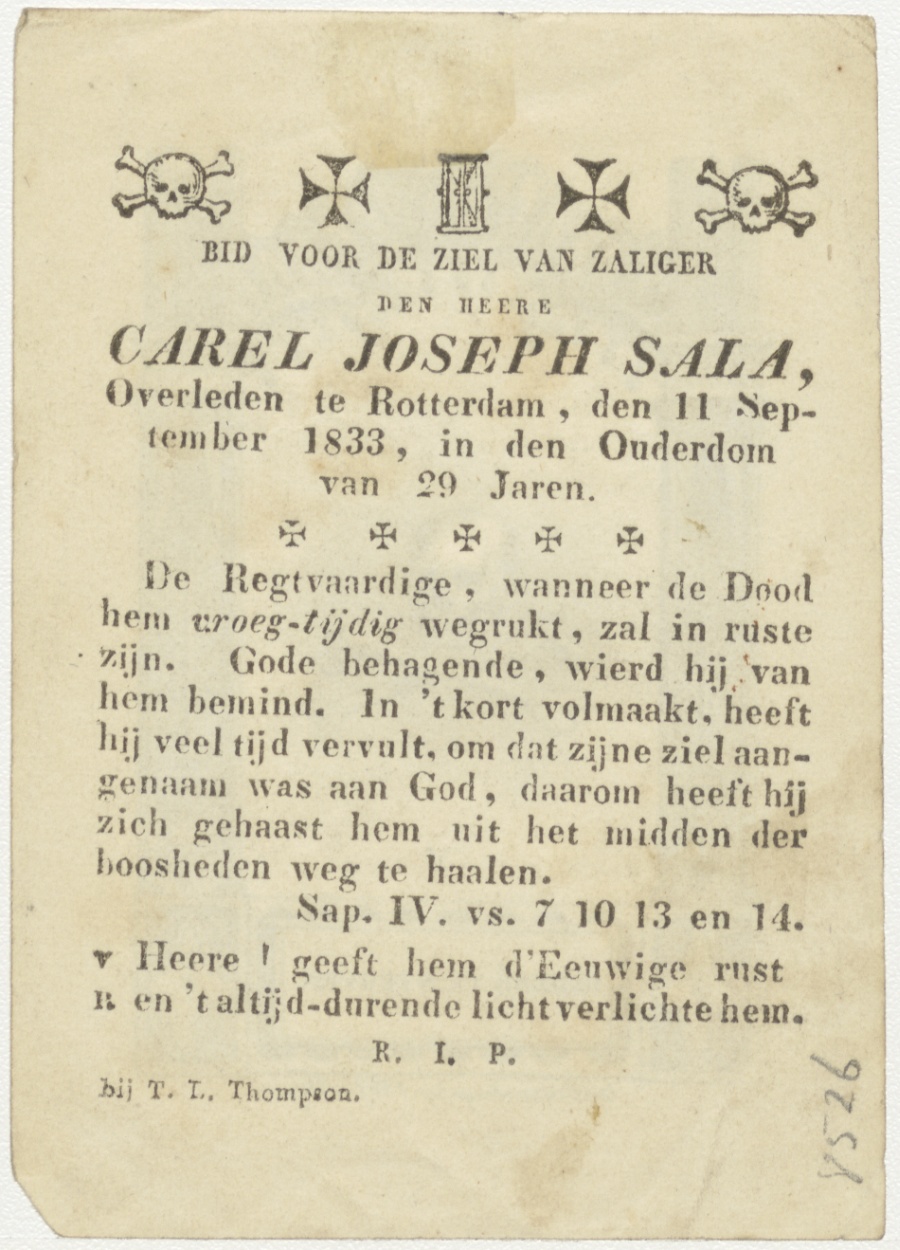 BID VOOR DE ZIEL VAN ZALIGER
DEN HEERE
CAREL JOSEPH SALA,
Overleden te Rotterdam, den 11 Sep-
tember 1833, in den Ouderdom
van 29 Jaren.
De Regtvaardige, wanneer de Dood
hem vroeg-tijdig wegrukt, zal in ruste
zijn. Gode behagende, wierd hij van
hem bemind. In 't kort volmaakt, heeft
hij veel tijd vervult, om dat zijne ziel aan-
genaam was aan God, daarom heeft hij
zich gehaast hem uit het midden der
boosheden weg te haalen.
Sap. IV. vs. 7 10 13 en 14.
v Heere ! geeft hem d'Eeuwige rust
R en 't altijd-durende licht verlichte hem.
R. I. P.
bij T. L. Thompson.
8526